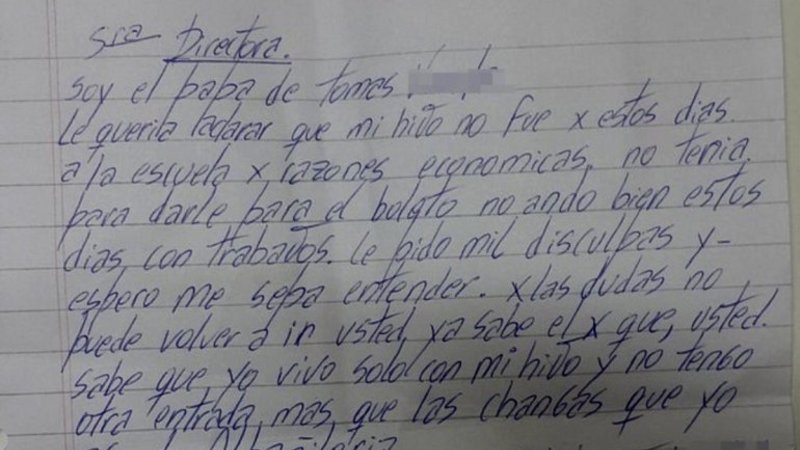 Sra Directora.
Soy el papa de tomas
Le queria aclarar que mi hijo no fue x estos dias.
a la escuela x razones economicas, no tenia
para darle para el boleto no ando bien estos
dias, con trabajos. Le pido mil disculpas y-
espero me sepa entender. x las dudas no
puede volver a ir usted, ya sabe el x que, usted.
sabe que, yo vivo solo con mi hijo y no tengo
otra entrada, mas, que las changas que yo